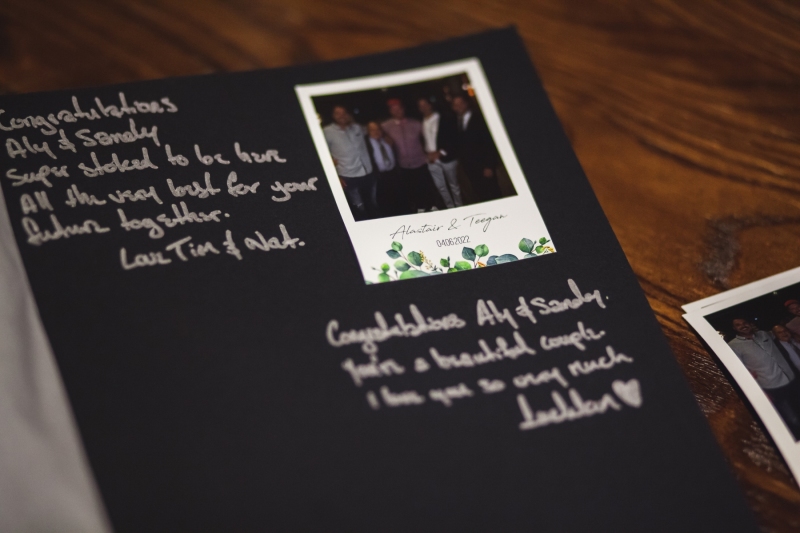 Congratulations
Aly & Sandy
Super stoked to be here
All the very best for your
future together.
Love Tim & Nat.
Alastair & Teegan
04062022
Congratulations Aly & Sandy.
you're a beautiful couple.
I love you so very much
Lachlan